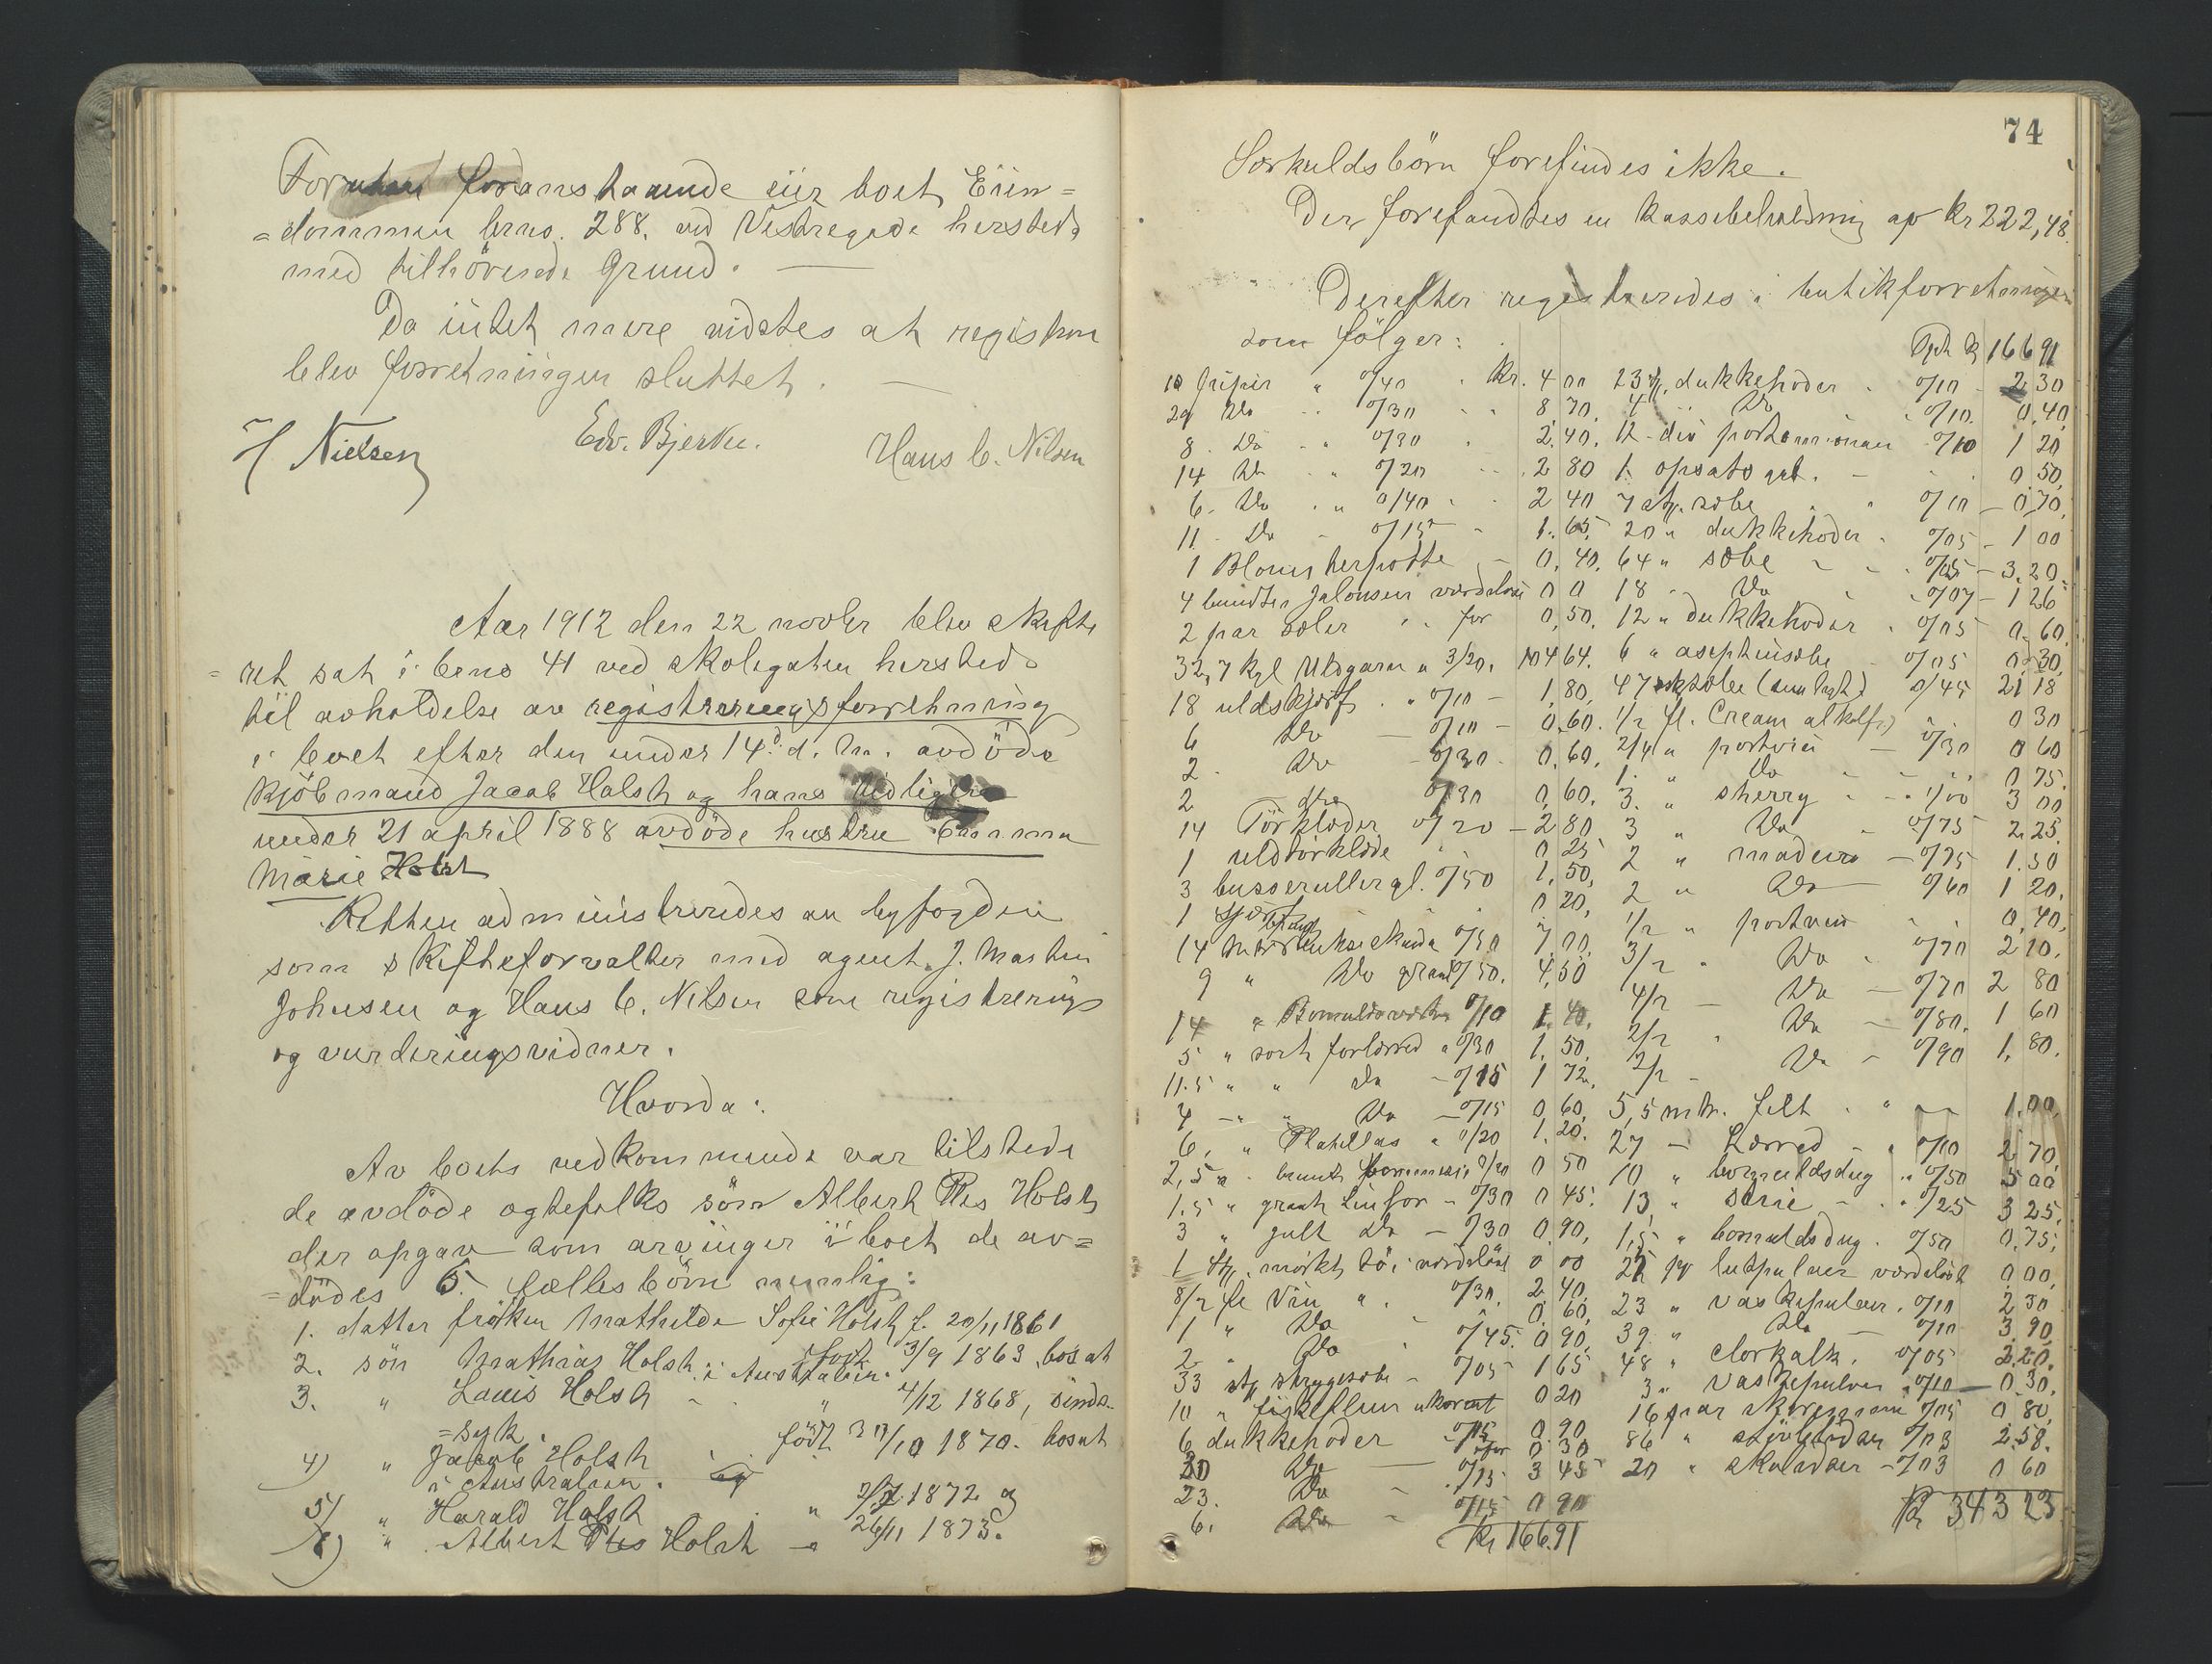 Foruten foranstaaende eier boet Eien=
=dommen brno. 288. ved Vestregade hersteds
med tilhörende Grund. —
Da intet mere vidstes at registrere
blev forretningen sluttet. —
H Nielsen Edv. Bjerke. Hans C. Nilsen
Aar 1912 den 22 novbr blev skifte
=ret sat i brno 41 ved skolegaten hersteds
til avholdelse av registreringsforretning
i boet efter den under 14d. d. m. avdöde
kjöbmand Jacob Holst og hans tidligere
under 21 april 1888 avdöde hustru Emma
Marie Holst
Retten administreredes av byfogden
som skifteforvalter med agent J. Martin
Johnsen og Hans C. Nilsen som registrerings
og vurderingsvidner.
Hvorda:
Av boets vedkommende var tilstede
de avdöde egtefolks sön Albert Ries Holst
der opgav som arvinger i boet de av=
=dödes 6 fælles börn nemlig:
1. datter fröken Mathilde Sofie Holst f. 20/11 1861
2. sön Mathias Holst i Australien. född 3/9 1863, bosat
3. " Louis Holst - " 4/12 1868, sinds-
=syk.
4) " Jacob Holst född 30/10 1870. bosat
i Australien. og
5) " Harald Holst " 2/7 1872 og
6) " Albert Ries Holst — 26/11 1873.
74
Særkuldsbörn forefindes ikke.
Der forefandtes en kassebeholdning av kr 222,48.
Derefter registreredes i butikforretningen
som fölger:
Tpt kr 166 91
10 Griper " 0/40 . Kr. 4 00
29 Do " 0/30 8,70.
8. Do " 0/30 2.40.
14 Do " 0/20 2 80
6. Do " 0/40 2 40
11 Do 0/15 1.65
1 Blomsterpotte — 0.40.
4 bundter Jalousier værdelöse 0 0
2 par saler for 0,50.
32,7 kgl Uldgarn a 3/20. 104 64.
18 uldskjærf " 0/10 — 1,80.
6 Do — 0/10 — 0.60.
2 Do — 0/30 0.60.
2 do 0/30 0,60.
14 Törklæder 0/20 — 2 80
1 uldtörklæde 0 25
3 busseruller gl. 0/50 1,50,
1 skjærf 0 20,
14 mtr buksekunde 0/50 7,00,
9 " Do graat 0/50. 4,50
14 " Bomuldsvæske 0/10 1.40.
5 " sort forlærred a 0/30 1.50.
11.5 " " Do — 0/15 1 72.
4 — " " Do — 0/15 0,60,
6. " Platillas a 0/20 1.20.
2,5 " brunt bommesi 0/20 0 50
1.5 " graat Linfor — 0/30 0 45.
3 " gult Do — 0/30 0.90,
1 stk. mörkt töi værdelöst 0 00
8/2 fl Vin a. 0/30. 2.40.
1 " Do 0.60,
2 " Do 0/45. 0 90,
33 stk strygesæbe — 0/05 1 65
10 " 0 20
6 dukkehoder — 0/15 0.90
20 Do — for 0 30
23. Do — 0/15 3 45
6. Do — 0/15 0 90
Kr 166.91
23 stk. dukkehoder 0/10 — 2 30
4 " Do 0/10. 0,40,
12 div portemonæer 0/10 1 20
1. opsats gul. — 0 50,
7 stk. sæbe " 0/10 — 0,70,
20 " dukkehoder 0/05 — 1 00
64 " sæbe 0/05 — 3.20
18 Do 0/07 — 1 26
12 " dukkehoder 0/05 0.60,
6 " aseptinsæbe 0/05 0,30,
47 stk sæbe (sunlight) 0/45 21 18
1/2 fl. Cream alkolfri 0 30
2/4 " portvin — 0/30 0 60
1. " Do 0 75.
3. " sherry 1/00 3 00
3 " Do 0/75 2.25.
2 " madeira — 0/75 1.50
2 " Do 0/60 1 20.
1/2 " portvin 0,40,
3/2 " Do 0/70 2 10.
4/2 — Do — 0/70 2 80
2/2 " Do — 0/80. 1 60
2/2 — Do — 0/90 1,80.
5,5 mtr. filt " 1.00,
27 — Lærred — 0/10 2 70,
10 " bomuldsdug " 0/50 5 00
13 " serie — 0/25 3 25.
1,5 " bomuldsdug. 0/50 0.75.
27 pk lutpulver værdelöst 0 00,
23 " vaskepulver. 0/10 2 30
39. " Do — 0/10 3,90,
48 " clorkalk. 0/05 2.20.
3 " vaskepulver 0/10 — 0 30,
16 par skoremmer 0/05 0 80
86 " 0/03 2.58.
20 " — 0/03 0 60
Kr 343 23